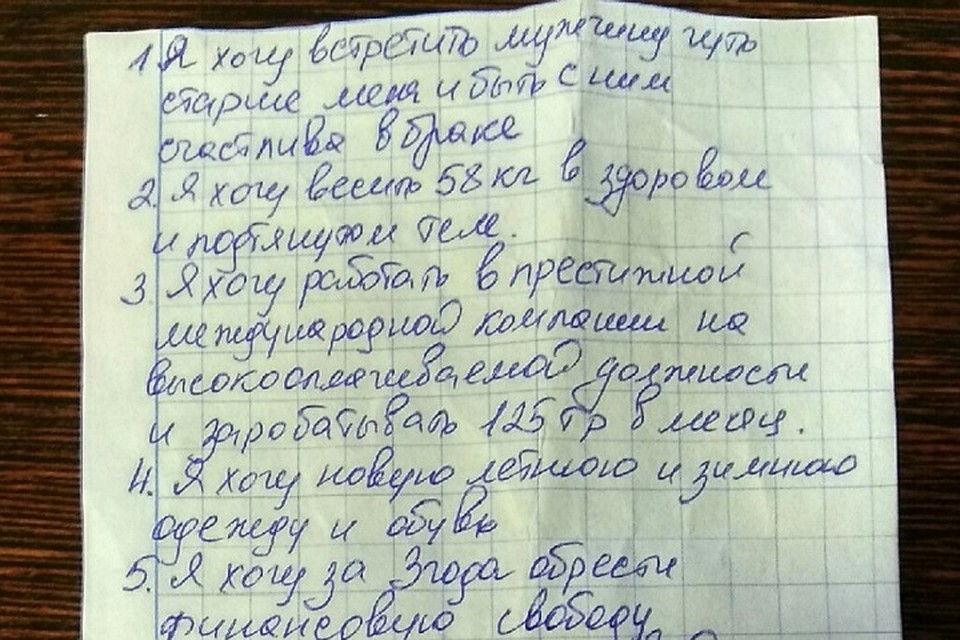 1 Я хочу встретить мужчину чуть
старше меня и быть с ним
счастлива в браке
2. Я хочу весить 58 кг в здоровом
и подтянутом теле.
3. Я хочу работать в престижной
международной компании на
высокооплачиваемой должности
и заробатывать 125 тр в месяц.
4. Я хочу новую летнюю и зимнюю
одежду и обувь
5. Я хочу за 3 года обрести
финансовую свободу